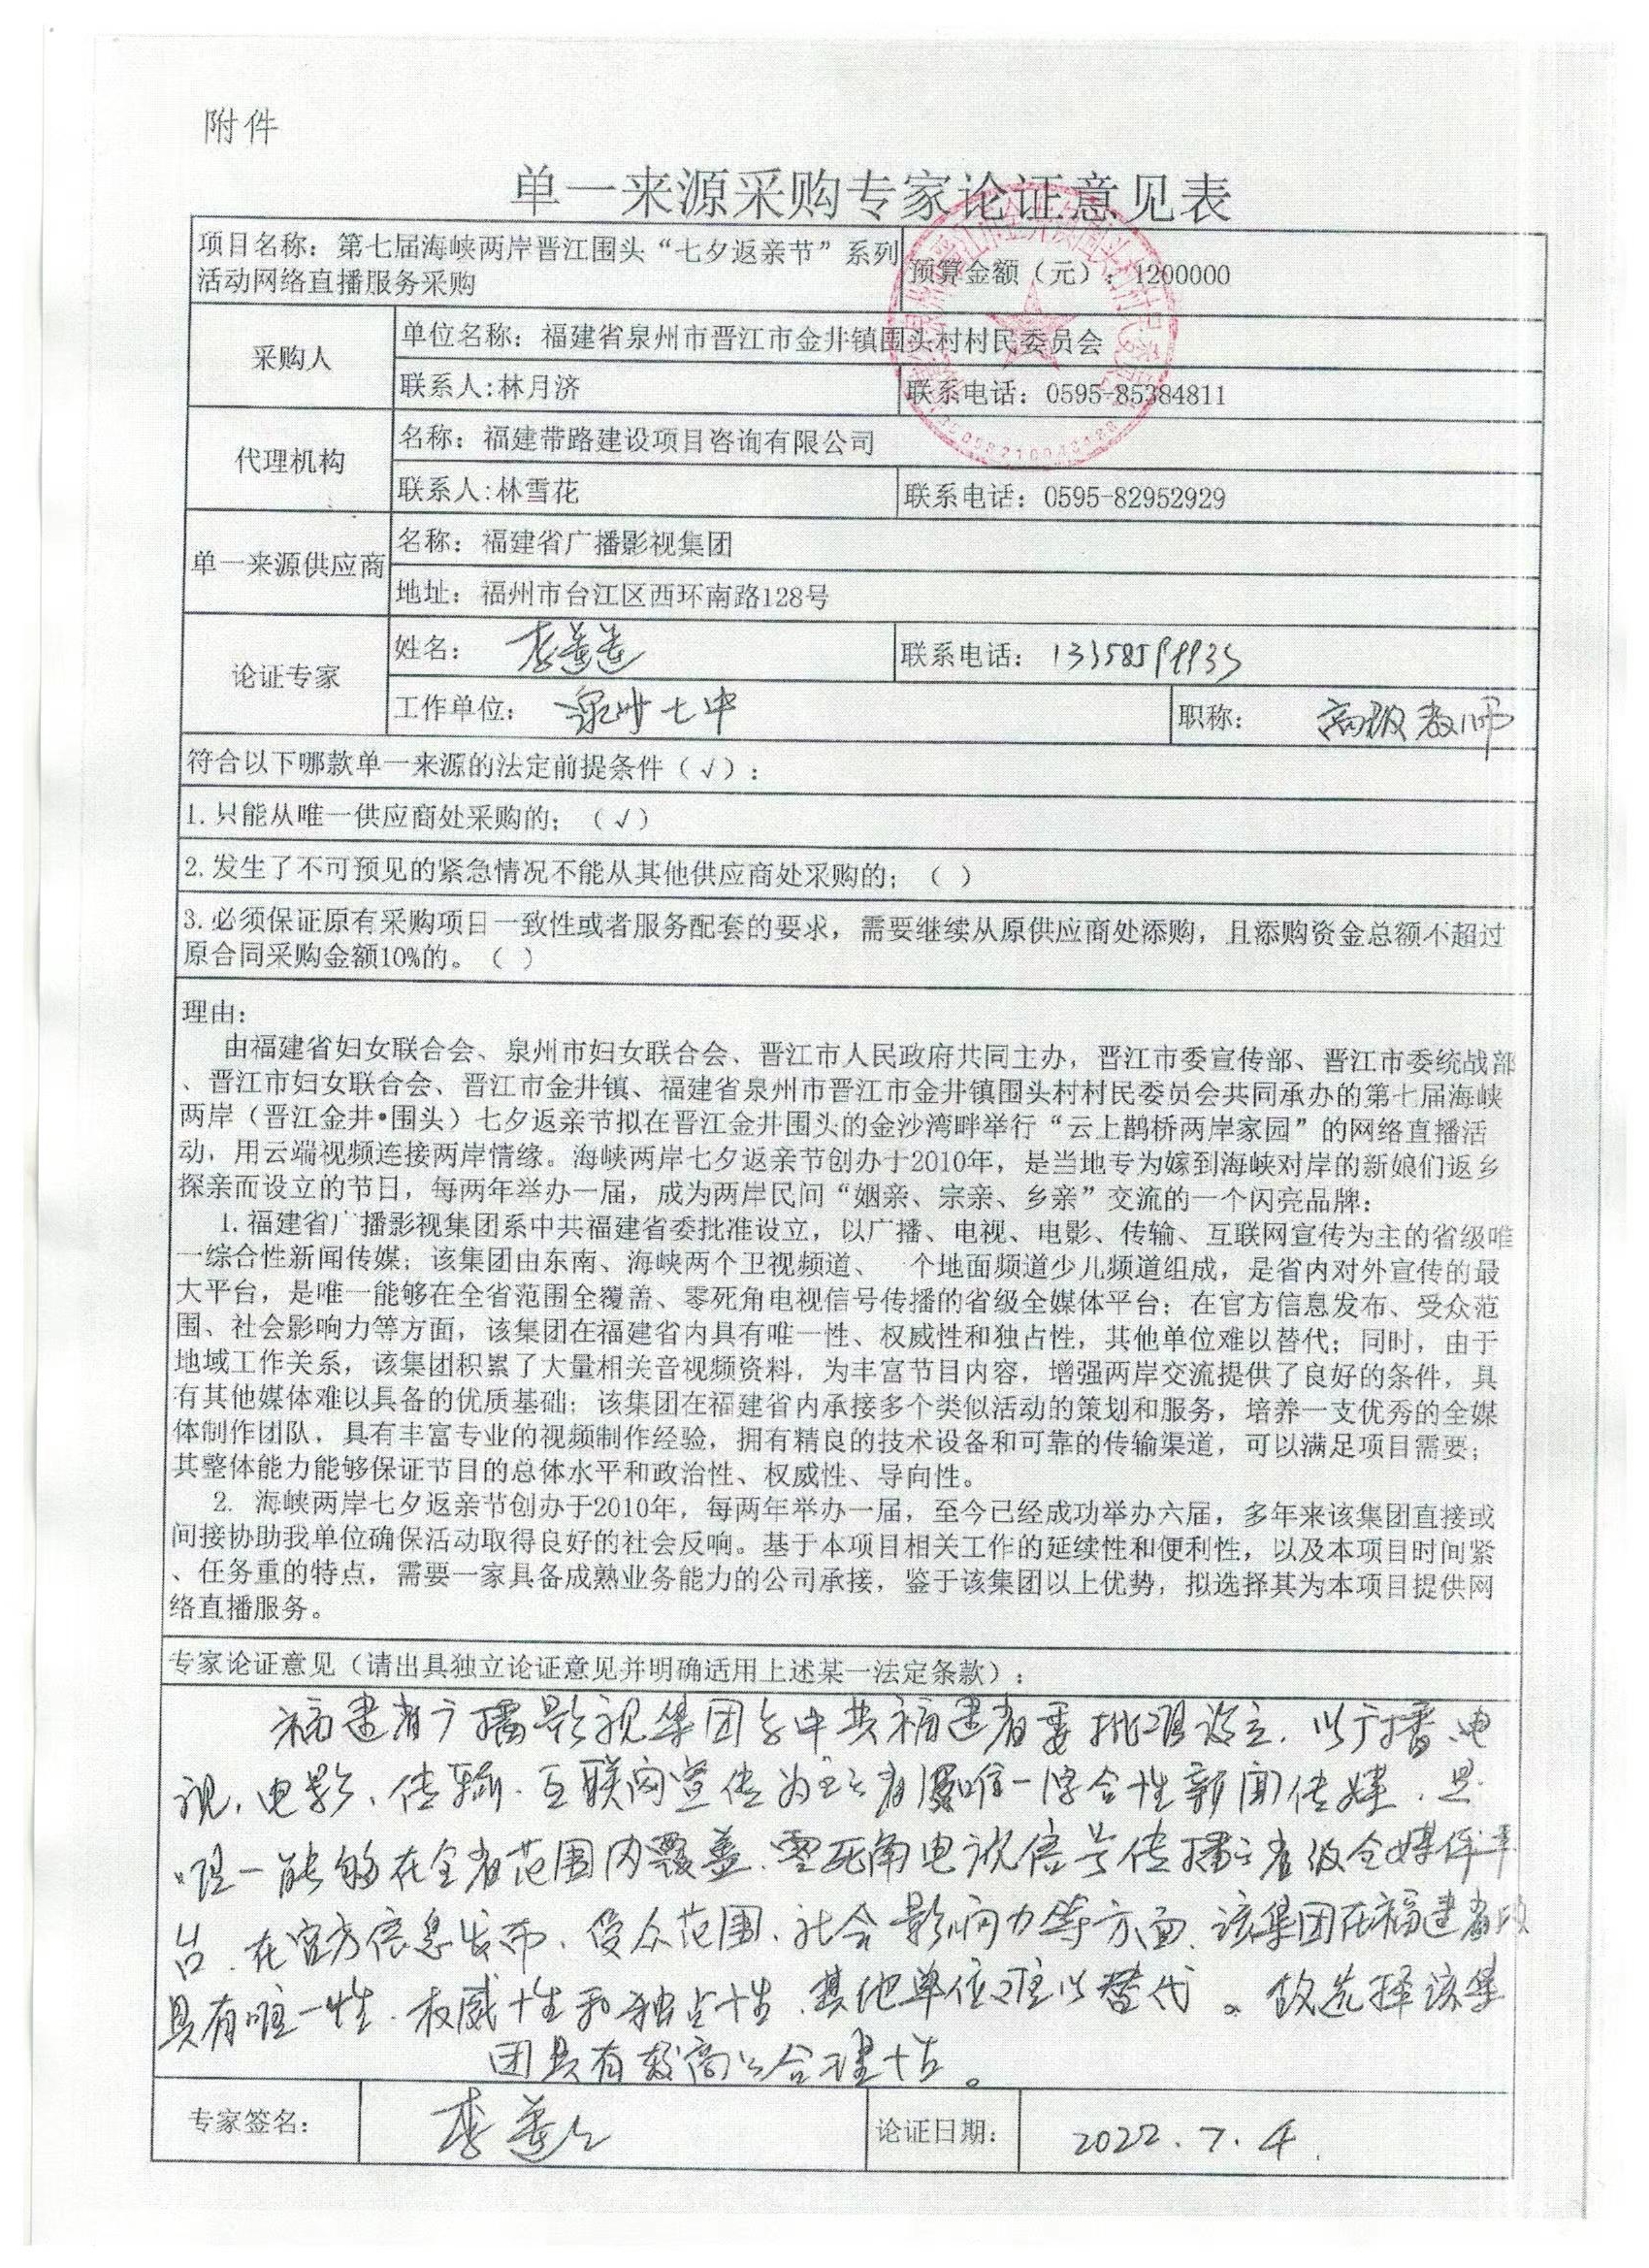 附件
单一来源采购专家论证意见表
项目名称：第七届海峡两岸晋江围头“七夕返亲节”系列
活动网络直播服务采购
预算金额（元）：1200000
采购人
单位名称：福建省泉州市晋江市金井镇围头村村民委员会
联系人:林月济
联系电话：0595-85384811
代理机构
名称：福建带路建设项目咨询有限公司
联系人:林雪花
联系电话：0595-82952929
单一来源供应商
名称：福建省广播影视集团
地址：福州市台江区西环南路128号
论证专家
姓名：李莲
联系电话：
工作单位：泉州七中
职称：高级教师
符合以下哪款单一来源的法定前提条件（√）：
1.只能从唯一供应商处采购的；（√）
2.发生了不可预见的紧急情况不能从其他供应商处采购的；（ ）
3.必须保证原有采购项目一致性或者服务配套的要求，需要继续从原供应商处添购，且添购资金总额不超过
原合同采购金额10%的。（ ）
理由：
由福建省妇女联合会、泉州市妇女联合会、晋江市人民政府共同主办，晋江市委宣传部、晋江市委统战部
、晋江市妇女联合会、晋江市金井镇、福建省泉州市晋江市金井镇围头村村民委员会共同承办的第七届海峡
两岸（晋江金井•围头）七夕返亲节拟在晋江金井围头的金沙湾畔举行“云上鹊桥两岸家园”的网络直播活
动，用云端视频连接两岸情缘。海峡两岸七夕返亲节创办于2010年，是当地专为嫁到海峡对岸的新娘们返乡
探亲而设立的节日，每两年举办一届，成为两岸民间“姻亲、宗亲、乡亲”交流的一个闪亮品牌：
1.福建省广播影视集团系中共福建省委批准设立，以广播、电视、电影、传输、互联网宣传为主的省级唯
一综合性新闻传媒；该集团由东南、海峡两个卫视频道、一个地面频道少儿频道组成，是省内对外宣传的最
大平台，是唯一能够在全省范围全覆盖、零死角电视信号传播的省级全媒体平台；在官方信息发布、受众范
围、社会影响力等方面，该集团在福建省内具有唯一性、权威性和独占性，其他单位难以替代；同时，由于
地域工作关系，该集团积累了大量相关音视频资料，为丰富节目内容，增强两岸交流提供了良好的条件，具
有其他媒体难以具备的优质基础；该集团在福建省内承接多个类似活动的策划和服务，培养一支优秀的全媒
体制作团队，具有丰富专业的视频制作经验，拥有精良的技术设备和可靠的传输渠道，可以满足项目需要；
其整体能力能够保证节目的总体水平和政治性、权威性、导向性。
2. 海峡两岸七夕返亲节创办于2010年，每两年举办一届，至今已经成功举办六届，多年来该集团直接或
间接协助我单位确保活动取得良好的社会反响。基于本项目相关工作的延续性和便利性，以及本项目时间紧
、任务重的特点，需要一家具备成熟业务能力的公司承接，鉴于该集团以上优势，拟选择其为本项目提供网
络直播服务。
专家论证意见（请出具独立论证意见并明确适用上述某一法定条款）：
福建省广播影视集团系中共福建省委批准设立．以广播、电
视、电影、传输、互联网宣传为主的省级唯一综合性新闻传媒．是
唯一能够在全省范围内覆盖、零死角电视信号传播的省级全媒体平
台．在官方信息发布、受众范围、社会影响力等方面、该集团在福建省内
具有唯一性、权威性和独占性．其他单位难以替代。故选择该集
团具有较高的合理性。
专家签名：
李莲
论证日期：
2022.7.4.